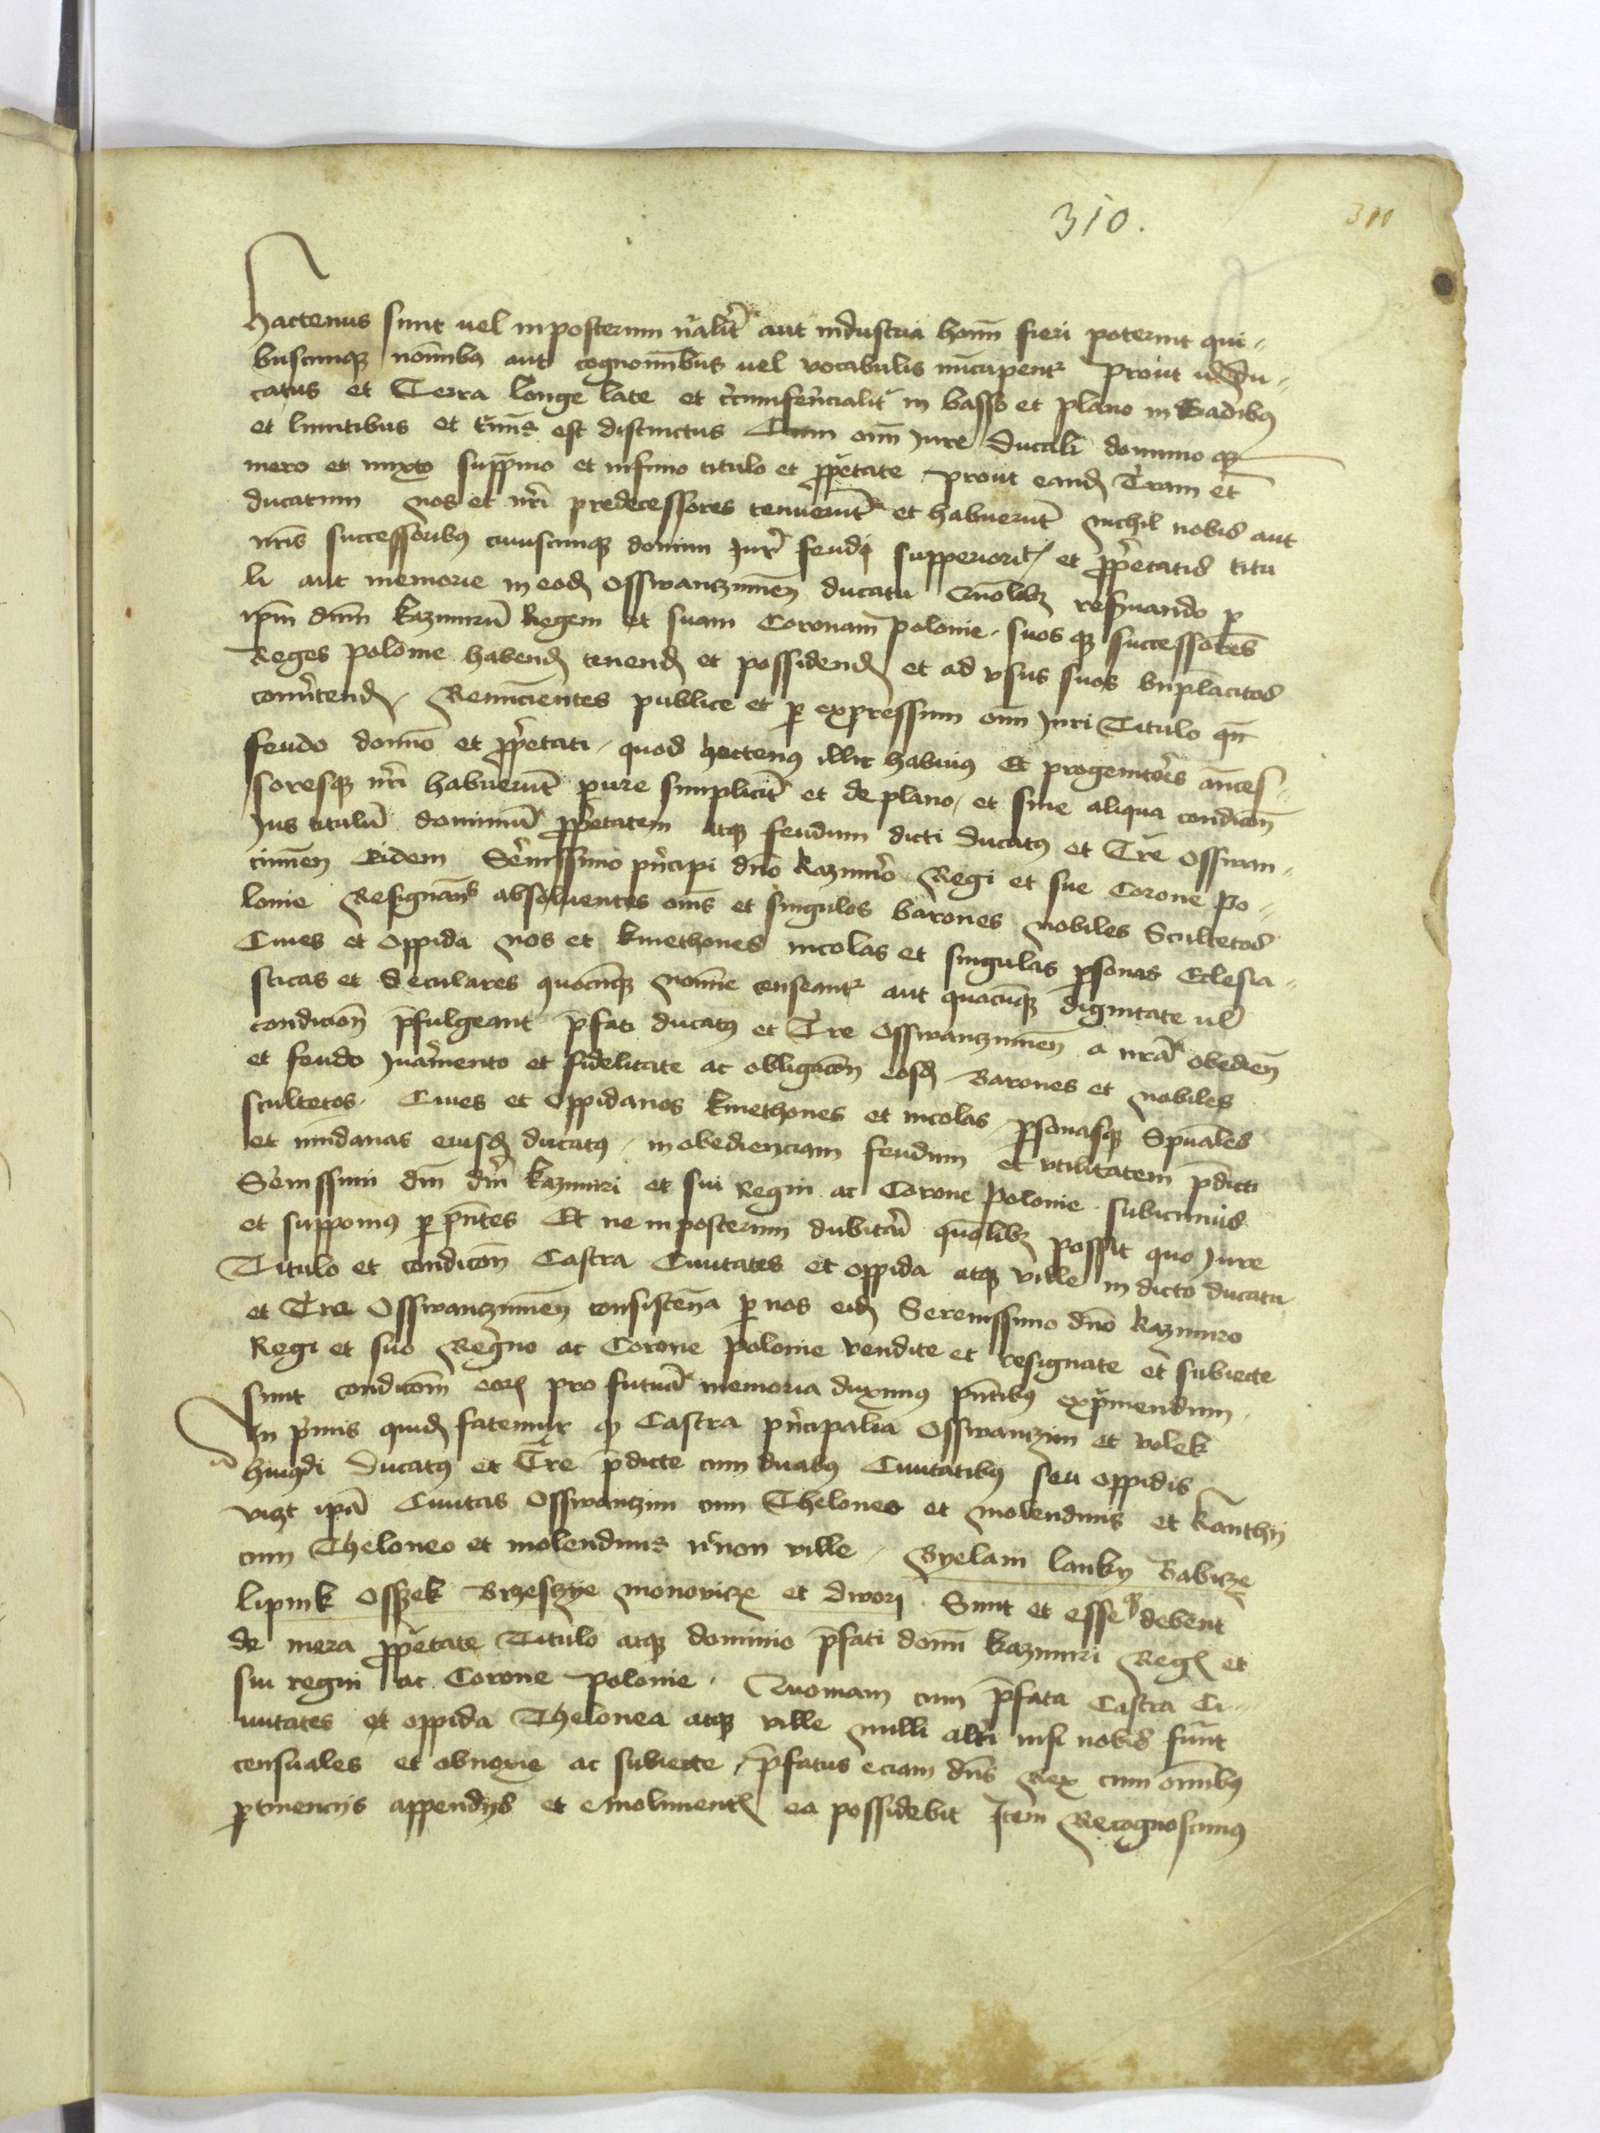 310.
311
hactenus sunt uel inposterum nãlit̃ aut industria homĩ fieri poterint qui-
buscunqꝫ noĩnibꝯ aut cognoĩnibus uel vocabulis nũcupentᷣ prout id Du-
catus et Terra longe late et circumferẽcialit̃ in basso et plano in Gadibꝯ
et limitibus et t̃mĩs est distinctus Cum om̃i Jure Ducali dominio qꝫ
mero et mixto supp̃mo et infimo titulo et ꝓp̃etate prout eandꝫ Tr̃am et
ducatum nos et nr̃i predecessores tenuerũt et habuerũt Nichil nobis aut
nr̃is successoribꝯ cuiuscunqꝫ domini Jur̃ feudi supperiorit̃ et ꝓp̃etatis titu
li aut memorie in eodꝫ Osswanczimeñ ducatu Quoĩlibꝫ resẽruando ꝑ
ip̃m dñm Kazimirũ Regem et suam Coronam Polonie suos qꝫ successores
Reges polonie habendꝫ tenendꝫ et possidendꝫ et ad vsus suos bñplacitos
conũtendꝫ Renũcientes publice et ꝑ expressum om̃i Juri Titulo
feudo domĩo et ꝓp̃etati quod hectenꝯ illic habuiꝯ Et progenitores ãnces-
soresqꝫ nr̃i habuerũt pure simplicit̃ et de plano et sine aliqua condicõn
Jus titulũ dominiũ ꝓp̃etatem atqꝫ feudum dicti Ducatꝯ et Tr̃e Osswan-
cimeñ Eidem Sẽrnissimo pñcipi dño Kazimiro Regi et sue Corone Po-
lonie Resignañs absoluentes om̃s et singulos barones Nobiles Scultetos
Ciues et Oppida nos et kmethones incolas et singulas ꝑsonas Eclesia-
sticas et Seculares quocũqꝫ Noĩne censeantᷣ aut quacũqꝫ dignitate ul̃
condicioñ p̃fulgeant p̃fati ducatꝯ et Tr̃e Osswanczimeñ a nr̃a obedieñ
et feudo Juramento et fidelitate ac obligacõn eosdꝫ Barones et Nobiles
scultetos Ciues et Oppidanos kmethones et incolas ꝑsonasqꝫ Sp̃uales
et mũdanas eiusdꝫ ducatꝯ in obedienciam feudum et vtilitatem p̃dicti
Sẽrnissimi dñi dñi Kazimiri et sui Regni ac Corone Polonie subicimus
et supponimꝯ ꝑ p̃ntes Et ne inposterum dubitari quoĩlibꝫ possit quo Jure
Titulo et condicõn Castra Ciuitates et oppida atqꝫ ville in dicto ducatu
et Tr̃a Osswanczimeñ consisteñcia ꝑ nos eidꝫ Serenissimo dño Kazimiro
Regi et suo Regno ac Corone polonie vendite et resignate et subiecte
sunt condicõm eoꝝ pro futura memoria duximꝯ p̃ntibꝯ exp̃mendum
In primis quidꝫ fatemur qꝫ Castra pñcipalia Osswanczim et volek
huiꝯdi Ducatꝯ et Tr̃e p̃dicte cum duabꝯ Ciuitatibꝯ seu oppidis
vizt ip̃a Ciuitas Osswanczim cum Theloneo et Molendinis et Kanthy
cum Theloneo et molendinis ñcnon ville Byelani lanky Babicze
lipnik Osszek Brzeszye monovicze et dwori Sunt et esse debent
de mera ꝓp̃etate Titulo atqꝫ dominio p̃fati domĩ Kazimiri Regꝭ et
sui regni ac Corone Polonie Quoniam cum p̃fata Castra Ci-
uitates et oppida Thelonea atqꝫ ville nulli alt̃i nisi nobis sunt
censuales et obnoxie ac subiecte p̃fatus eciam dñs Rex cum omĩbꝯ
ꝑtinencijs appendijs et emolimentꝭ ea possidebit Item Recognoscimꝯ